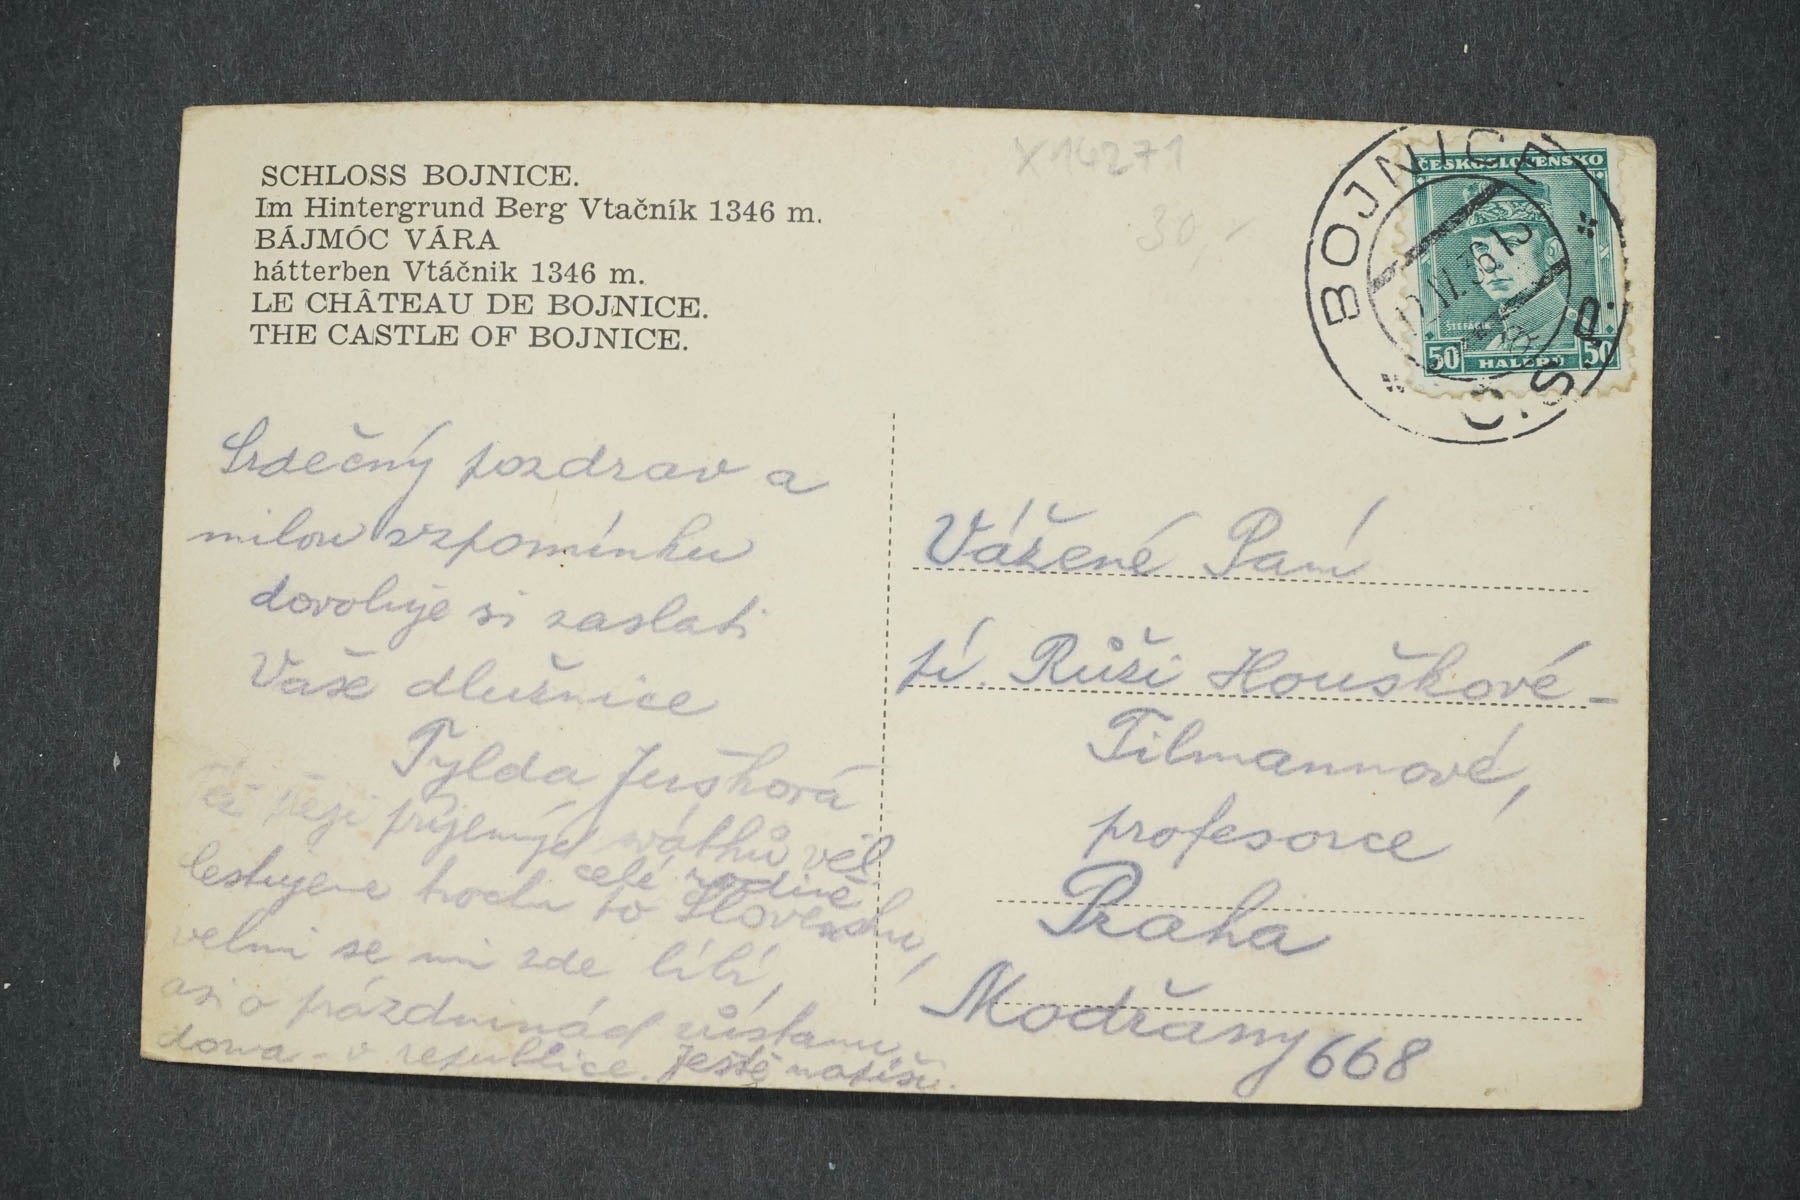 SCHLOSS BOJNICE.
Im Hintergrund Berg Vtačník 1346 m.
BÁJMÓC VÁRA
hátterben Vtáčnik 1346 m.
LE CHÂTEAU DE BOJNICE.
THE CASTLE OF BOJNICE.
X14271
30,-
BOJNICE
Č.S.P.
ČESKOSLOVENSKO
ŠTEFÁNIK
50 HALÉŘŮ 50
Srdečný pozdrav a
milou vzpomínku
dovoluje si zaslati
Vaše dlužnice
Tylda Jušková
Též přeji příjemných svátků
celé rodině
cestujeme trochu po Slovensku,
velmi se mi zde líbí,
asi o prázdninách zůstanu
doma - v republice. Ještě napíši.
Vážené Paní
pí. Růži Houškové-
Tilmannové,
profesorce
Praha
Modřany 668